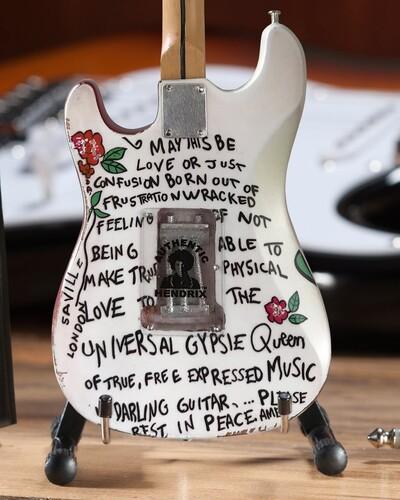 MAY THIS BE
LOVE OR JUST
CONFUSION BORN OUT OF
FRUSTRATION WRACKED
FEELIN OF NOT
BEING ABLE TO
MAKE TRU PHYSICAL
LOVE TO THE
UNIVERSAL GYPSIE Queen
OF TRUE, FREE EXPRESSED MUSIC
DARLING GUITAR, ... PLEASE
REST IN PEACE. AME
SAVILLE
LONDON
AUTHENTIC
HENDRIX